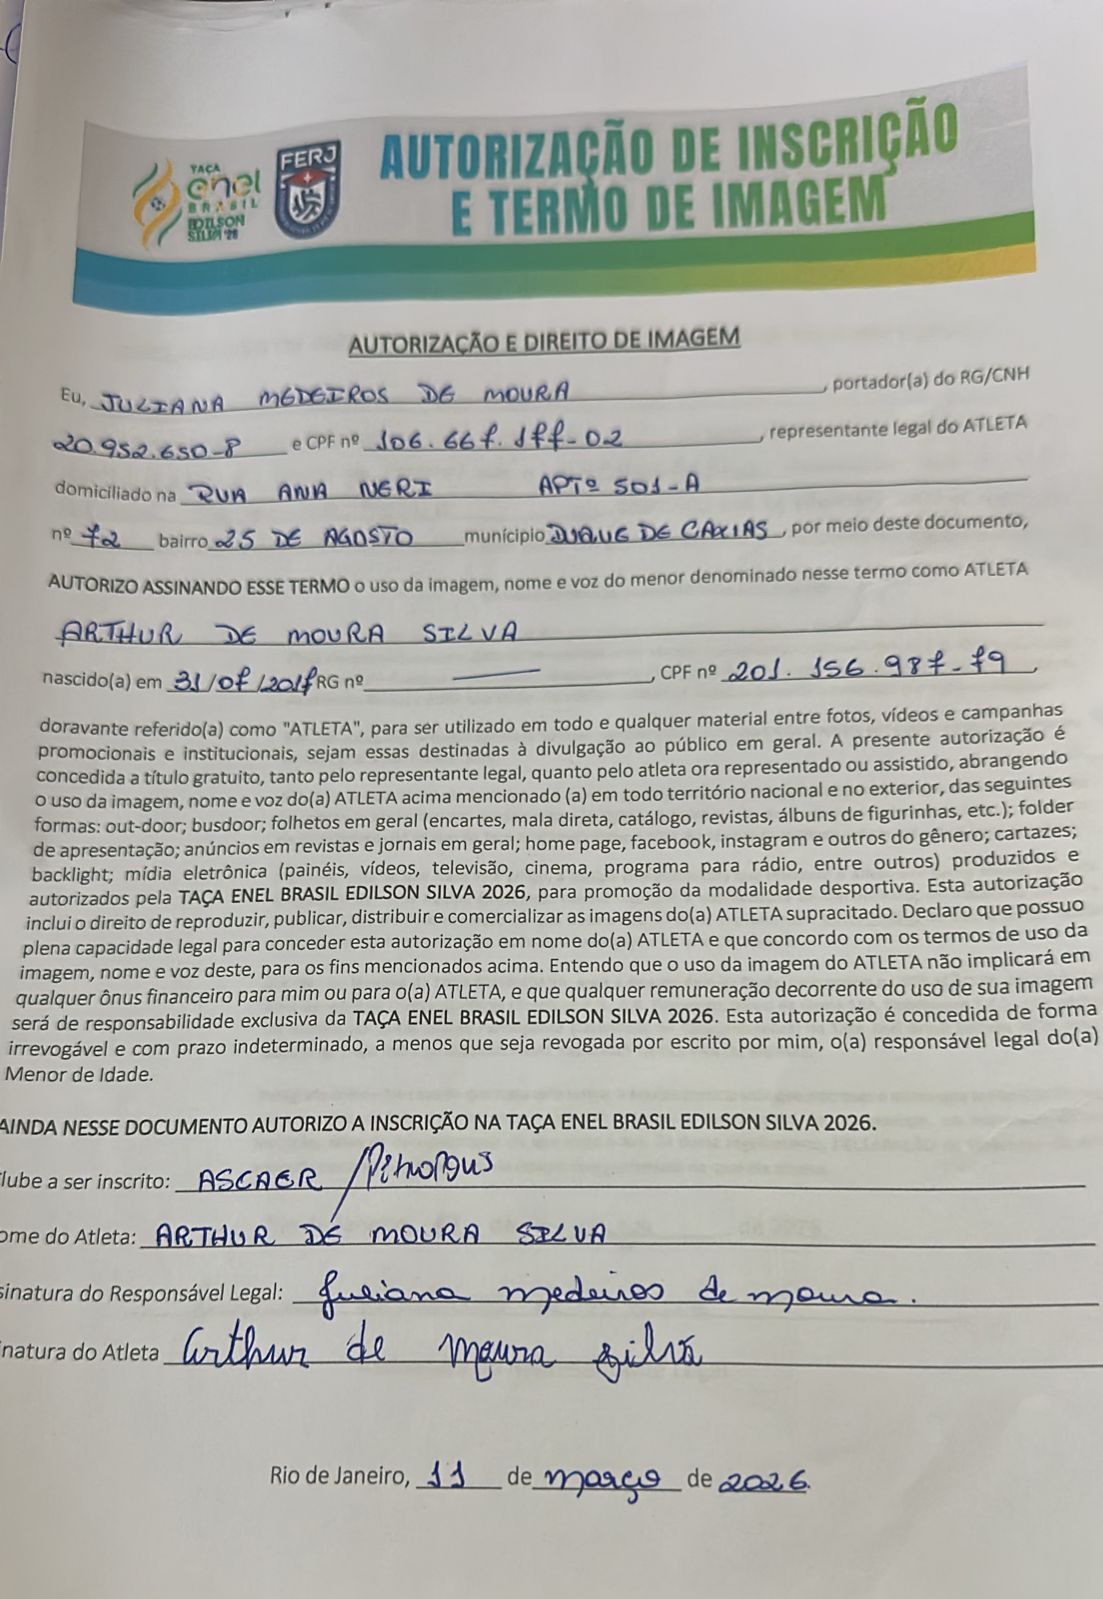 TAÇA
enel
BRASIL
EDILSON
SILVA '26
FERJ
AUTORIZAÇÃO DE INSCRIÇÃO
E TERMO DE IMAGEM
AUTORIZAÇÃO E DIREITO DE IMAGEM
Eu, JULIANA MEDEIROS DE MOURA, portador(a) do RG/CNH
20.952.650-8 e CPF nº 106.667.177-02, representante legal do ATLETA
domiciliado na RUA ANA NERI APTº 501-A
nº 72 bairro 25 DE AGOSTO município DUQUE DE CAXIAS, por meio deste documento,
AUTORIZO ASSINANDO ESSE TERMO o uso da imagem, nome e voz do menor denominado nesse termo como ATLETA
ARTHUR DE MOURA SILVA
nascido(a) em 31/07/2017 RG nº —, CPF nº 201.156.987-79,
doravante referido(a) como "ATLETA", para ser utilizado em todo e qualquer material entre fotos, vídeos e campanhas
promocionais e institucionais, sejam essas destinadas à divulgação ao público em geral. A presente autorização é
concedida a título gratuito, tanto pelo representante legal, quanto pelo atleta ora representado ou assistido, abrangendo
o uso da imagem, nome e voz do(a) ATLETA acima mencionado (a) em todo território nacional e no exterior, das seguintes
formas: out-door; busdoor; folhetos em geral (encartes, mala direta, catálogo, revistas, álbuns de figurinhas, etc.); folder
de apresentação; anúncios em revistas e jornais em geral; home page, facebook, instagram e outros do gênero; cartazes;
backlight; mídia eletrônica (painéis, vídeos, televisão, cinema, programa para rádio, entre outros) produzidos e
autorizados pela TAÇA ENEL BRASIL EDILSON SILVA 2026, para promoção da modalidade desportiva. Esta autorização
inclui o direito de reproduzir, publicar, distribuir e comercializar as imagens do(a) ATLETA supracitado. Declaro que possuo
plena capacidade legal para conceder esta autorização em nome do(a) ATLETA e que concordo com os termos de uso da
imagem, nome e voz deste, para os fins mencionados acima. Entendo que o uso da imagem do ATLETA não implicará em
qualquer ônus financeiro para mim ou para o(a) ATLETA, e que qualquer remuneração decorrente do uso de sua imagem
será de responsabilidade exclusiva da TAÇA ENEL BRASIL EDILSON SILVA 2026. Esta autorização é concedida de forma
irrevogável e com prazo indeterminado, a menos que seja revogada por escrito por mim, o(a) responsável legal do(a)
Menor de Idade.
AINDA NESSE DOCUMENTO AUTORIZO A INSCRIÇÃO NA TAÇA ENEL BRASIL EDILSON SILVA 2026.
lube a ser inscrito: ASCAER /
ome do Atleta: ARTHUR DE MOURA SILVA
sinatura do Responsável Legal: Juliana medeiros de moura.
natura do Atleta Arthur de Moura Silva
Rio de Janeiro, 11 de março de 2026.